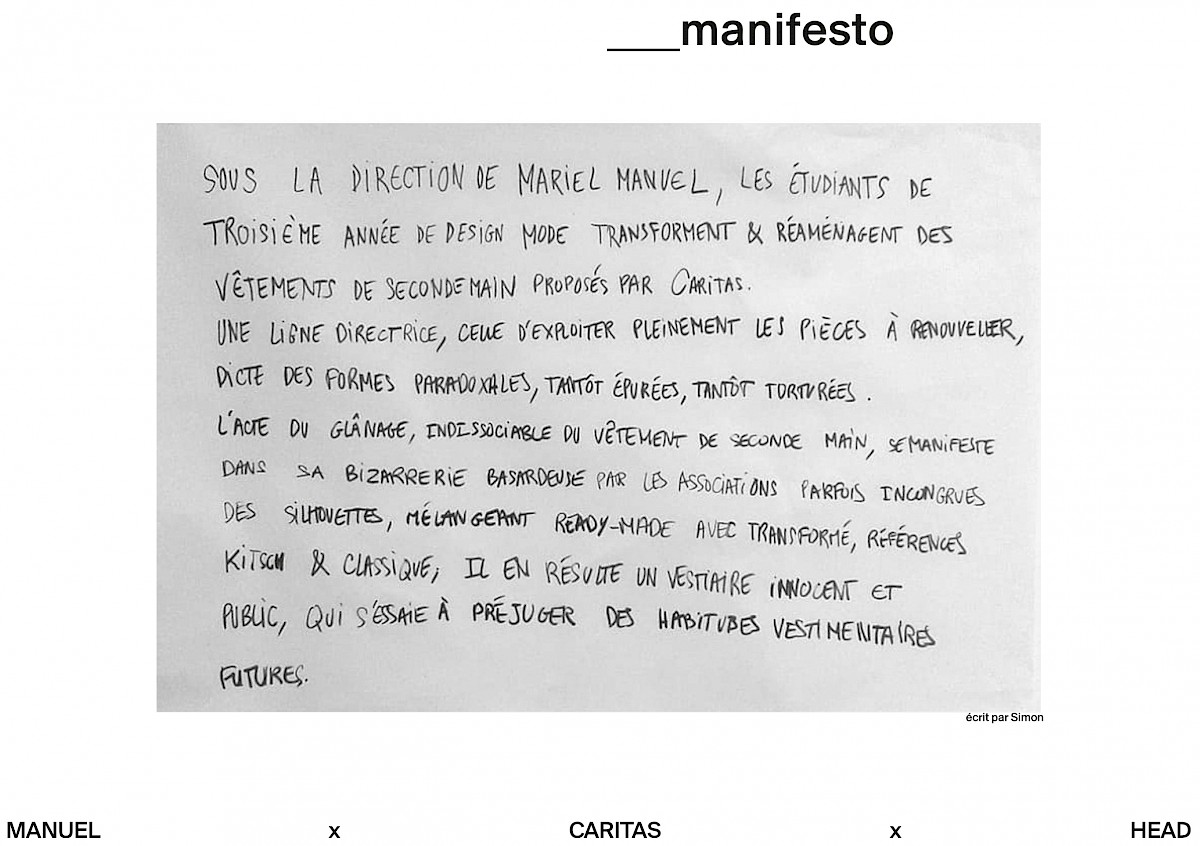 ____manifesto
SOUS LA DIRECTION DE MARIEL MANUEL, LES ÉTUDIANTS DE
TROISIÈME ANNÉE DE DESIGN MODE TRANSFORMENT & RÉAMÉNAGENT DES
VÊTEMENTS DE SECONDE MAIN PROPOSÉS PAR CARITAS.
UNE LIGNE DIRECTRICE, CELLE D'EXPLOITER PLEINEMENT LES PIÈCES À RENOUVELLER,
DICTE DES FORMES PARADOXALES, TANTÔT ÉPURÉES, TANTÔT TORTURÉES.
L'ACTE DU GLÂNAGE, INDISSOCIABLE DU VÊTEMENT DE SECONDE MAIN, SE MANIFESTE
DANS SA BIZARRERIE BASARDEUSE PAR LES ASSOCIATIONS PARFOIS INCONGRUES
DES SILHOUETTES, MÉLANGEANT READY-MADE AVEC TRANSFORMÉ, RÉFÉRENCES
KITSCH & CLASSIQUE; IL EN RÉSULTE UN VESTIAIRE INNOCENT ET
PUBLIC, QUI S'ESSAIE À PRÉJUGER DES HABITUDES VESTIMENTAIRES
FUTURES.
écrit par Simon
MANUEL x CARITAS x HEAD